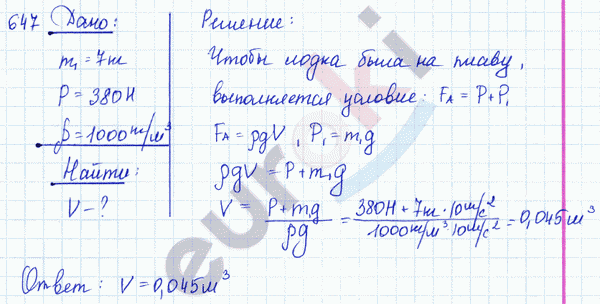 647 Дано:
m₁ = 7кг
P = 380Н
ρ = 1000 кг/м³
Найти:
V – ?
Решение:
Чтобы лодка была на плаву,
выполняется условие: F_A = P + P₁
F_A = ρgV, P₁ = m₁g
ρgV = P + m₁g
V = (P + mg)/(ρg) = (380Н + 7кг · 10м/с²)/(1000кг/м³ 10м/с²) = 0,045м³
Ответ: V = 0,045м³
euroki